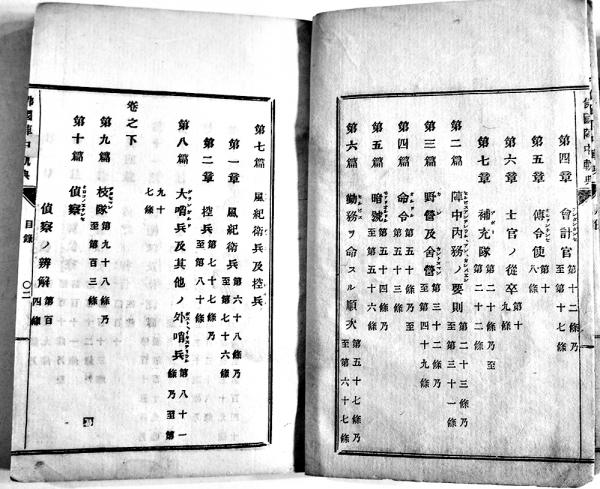 第四章 會計官 第十二條乃至第十七條
第五章 傳令使 第十八條
第六章 士官ノ從卒 第十九條
第七章 補充隊 第二十條乃至第二十二條
第二篇 陣中內務ノ要則 第二十三條乃至第三十一條
第三篇 野營及舍營 第三十二條乃至第四十九條
第四篇 命令 第五十條乃至第五十三條
第五篇 暗號 第五十四條乃至第五十六條
第六篇 勤務ヲ命スル順次 第五十七條乃至第六十七條
第七篇 風紀衛兵及控兵
第一章 風紀衛兵 第六十八條乃至第七十六條
第二章 控兵 第七十七條乃至第八十條
第八篇 大哨兵及其他ノ外哨兵 第八十一條乃至第九十七條
卷之下
第九篇 枝隊 第九十八條乃至第百三條
第十篇 偵察
偵察ノ辨解 第百四條
佛國陣中軌典
目錄
〇二